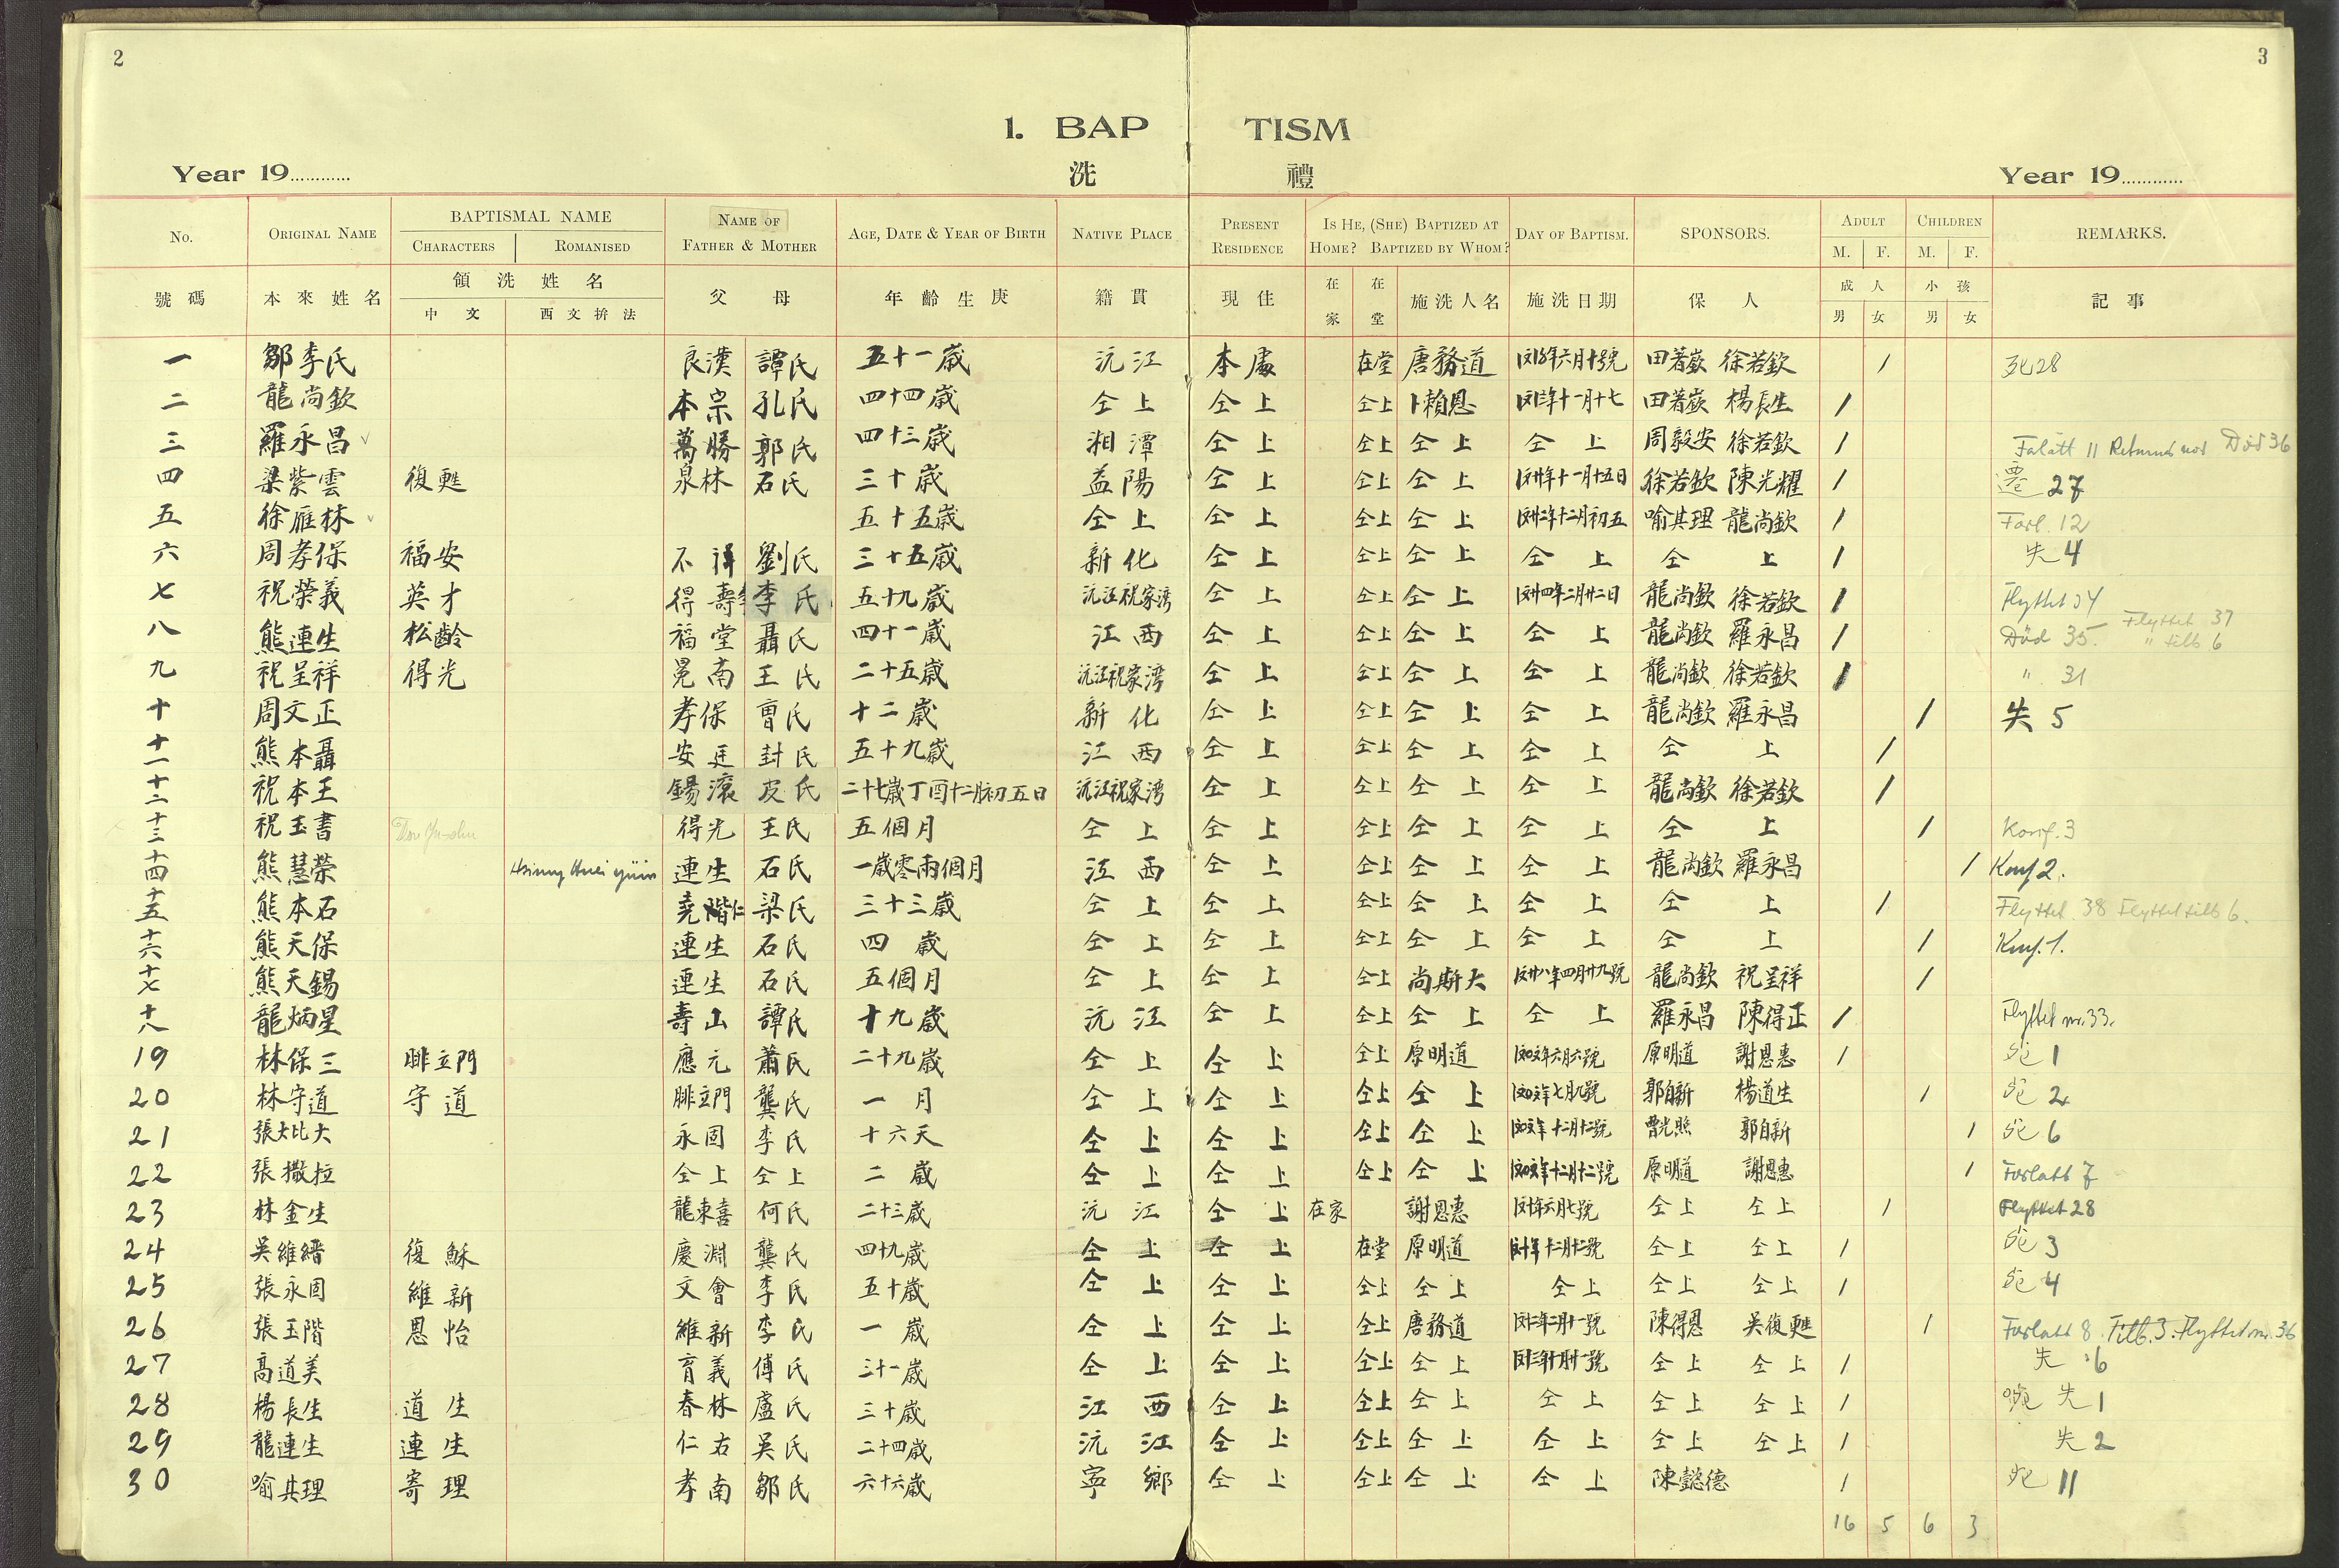 2
3
1. BAP TISM
Year 19............ 洗 禮 Year 19............
No. ORIGINAL NAME BAPTISMAL NAME CHARACTERS ROMANISED NAME OF FATHER & MOTHER AGE, DATE & YEAR OF BIRTH NATIVE PLACE PRESENT RESIDENCE IS HE, (SHE) BAPTIZED AT HOME? BAPTIZED BY WHOM? DAY OF BAPTISM. SPONSORS. ADULT M. F. CHILDREN M. F. REMARKS.
號碼 本來姓名 領洗姓名 中文 西文拚法 父母 年齡生庚 籍貫 現住 在家 在堂 施洗人名 施洗日期 保人 成人 男 女 小孩 男 女 記事
一 鄒李氏 良漢 譚氏 五十一歲 沅江 本處 在堂 唐務道 田著嶔 徐若欽 1 死28
二 龍尚欽 本宗 孔氏 四十四歲 仝上 仝上 仝上 卜賴恩 田著嶔 楊長生 1
三 羅永昌 萬勝 郭氏 四十三歲 湘潭 仝上 仝上 仝上 仝上 周毅安 徐若欽 1 Falatt 11 Returned not Död 36
四 梁紫雲 復甦 泉林 石氏 三十歲 益陽 仝上 仝上 仝上 徐若欽 陳光耀 1 遷 27
五 徐雁林 五十五歲 仝上 仝上 仝上 仝上 喻其理 龍尚欽 1 Forl. 12
六 周孝保 福安 不祥 劉氏 三十五歲 新化 仝上 仝上 仝上 仝上 仝上 1 失 4
七 祝榮義 英才 得壽 李氏 五十九歲 沅江祝家湾 仝上 仝上 仝上 龍尚欽 徐若欽 1 Flyttet 34
八 熊連生 松齡 福堂 聶氏 四十一歲 江西 仝上 仝上 仝上 仝上 龍尚欽 羅永昌 1 Död 35. Flyttet 37 " tilb 6
九 祝呈祥 得光 晃南 王氏 二十五歲 沅江祝家湾 仝上 仝上 仝上 仝上 龍尚欽 徐若欽 1 " 31
十 周文正 孝保 曹氏 十二歲 新化 仝上 仝上 仝上 仝上 龍尚欽 羅永昌 1 失 5
十一 熊本聶 安廷 封氏 五十九歲 江西 仝上 仝上 仝上 仝上 仝上 1
十二 祝本王 錫滾 皮氏 二十七歲丁酉十二月初五日 沅江祝家湾 仝上 仝上 仝上 仝上 龍尚欽 徐若欽 1
十三 祝玉書 得光 王氏 五個月 仝上 仝上 仝上 仝上 仝上 仝上 1 Konf. 3
十四 熊慧榮 連生 石氏 一歲零兩個月 江西 仝上 仝上 仝上 仝上 龍尚欽 羅永昌 1 Konf 2.
十五 熊本石 堯階 梁氏 三十三歲 仝上 仝上 仝上 仝上 仝上 仝上 1 Flyttet 38 Flyttet tilb 6.
十六 熊天保 連生 石氏 四歲 仝上 仝上 仝上 仝上 仝上 仝上 1 Konf. 1.
十七 熊天錫 連生 石氏 五個月 仝上 仝上 仝上 尚斯大 龍尚欽 祝呈祥 1
十八 龍炳星 壽山 譚氏 十九歲 沅江 仝上 仝上 仝上 仝上 羅永昌 陳得正 1 Flyttet nr. 33.
19 林保三 腓立門 應元 蕭氏 二十九歲 仝上 仝上 仝上 原明道 原明道 謝恩惠 1 死 1
20 林守道 守道 腓立門 龔氏 一月 仝上 仝上 仝上 仝上 郭自新 楊道生 1 死 2
21 張大比大 永固 李氏 十六天 仝上 仝上 仝上 仝上 曹光照 郭自新 1 死 6
22 張撒拉 仝上 仝上 二歲 仝上 仝上 仝上 仝上 原明道 謝恩惠 1 Forlatt 7
23 林金生 龍東喜 何氏 二十三歲 沅江 仝上 在家 謝恩惠 仝上 仝上 1 Flyttet 28
24 吳維縉 復穌 慶淵 龔氏 四十九歲 仝上 仝上 在堂 原明道 仝上 仝上 1 死 3
25 張永固 維新 文會 李氏 五十歲 仝上 仝上 仝上 仝上 仝上 仝上 仝上 1 死 4
26 張玉階 恩怡 維新 李氏 一歲 仝上 仝上 仝上 唐務道 陳得恩 吳復甦 1 Forlatt 8. Tilb. 3. Flyttet nr. 36
27 高道美 育義 傅氏 三十一歲 仝上 仝上 仝上 仝上 仝上 仝上 1 失 6
28 楊長生 道生 春林 盧氏 三十歲 江西 仝上 仝上 仝上 仝上 仝上 仝上 1 失 1
29 龍連生 連生 仁右 吳氏 二十四歲 沅江 仝上 仝上 仝上 仝上 仝上 仝上 1 失 2
30 喻其理 寄理 孝南 鄒氏 六十六歲 寧鄉 仝上 仝上 仝上 仝上 陳懿德 1 死 11
16 5 6 3